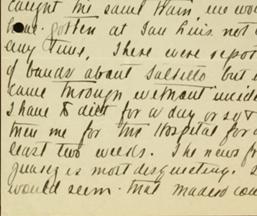 caught the same train we wou
have gotten at San Luis. not
any time, There were repor
of bands about Saltillo but
came through without incide
I have to diet for a day or so
then me for the Hospital for a
least two weeks. The news fr
is most disquieting.
would seem that Madero cou